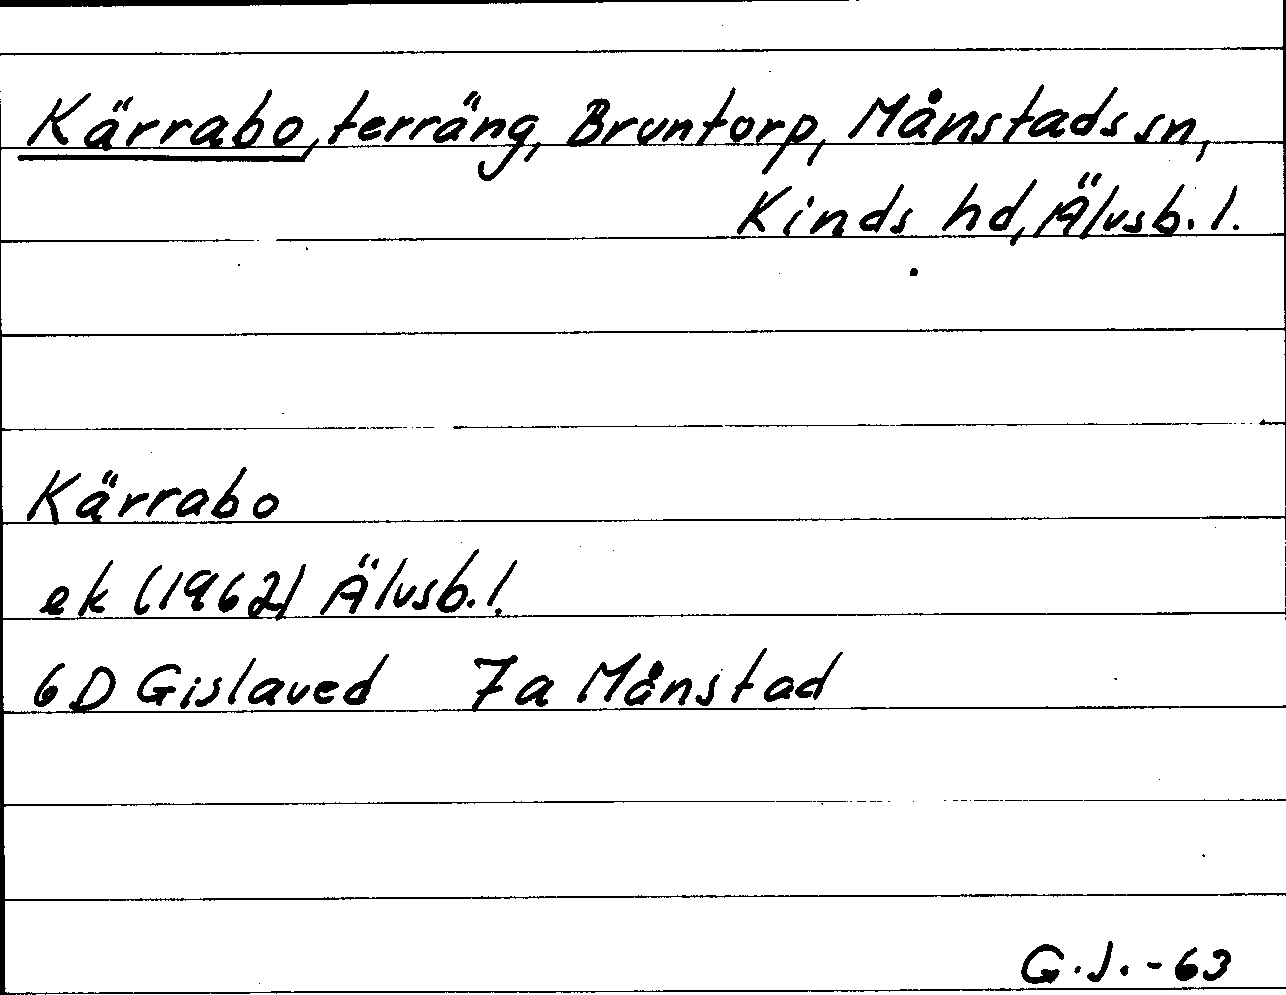 Kärrabo, terräng, Bruntorp, Månstads sn,
Kinds hd, Älvsb. l.
Kärrabo
ek (1962) Älvsb. l.
6D Gislaved 7a Månstad
G.J. -63